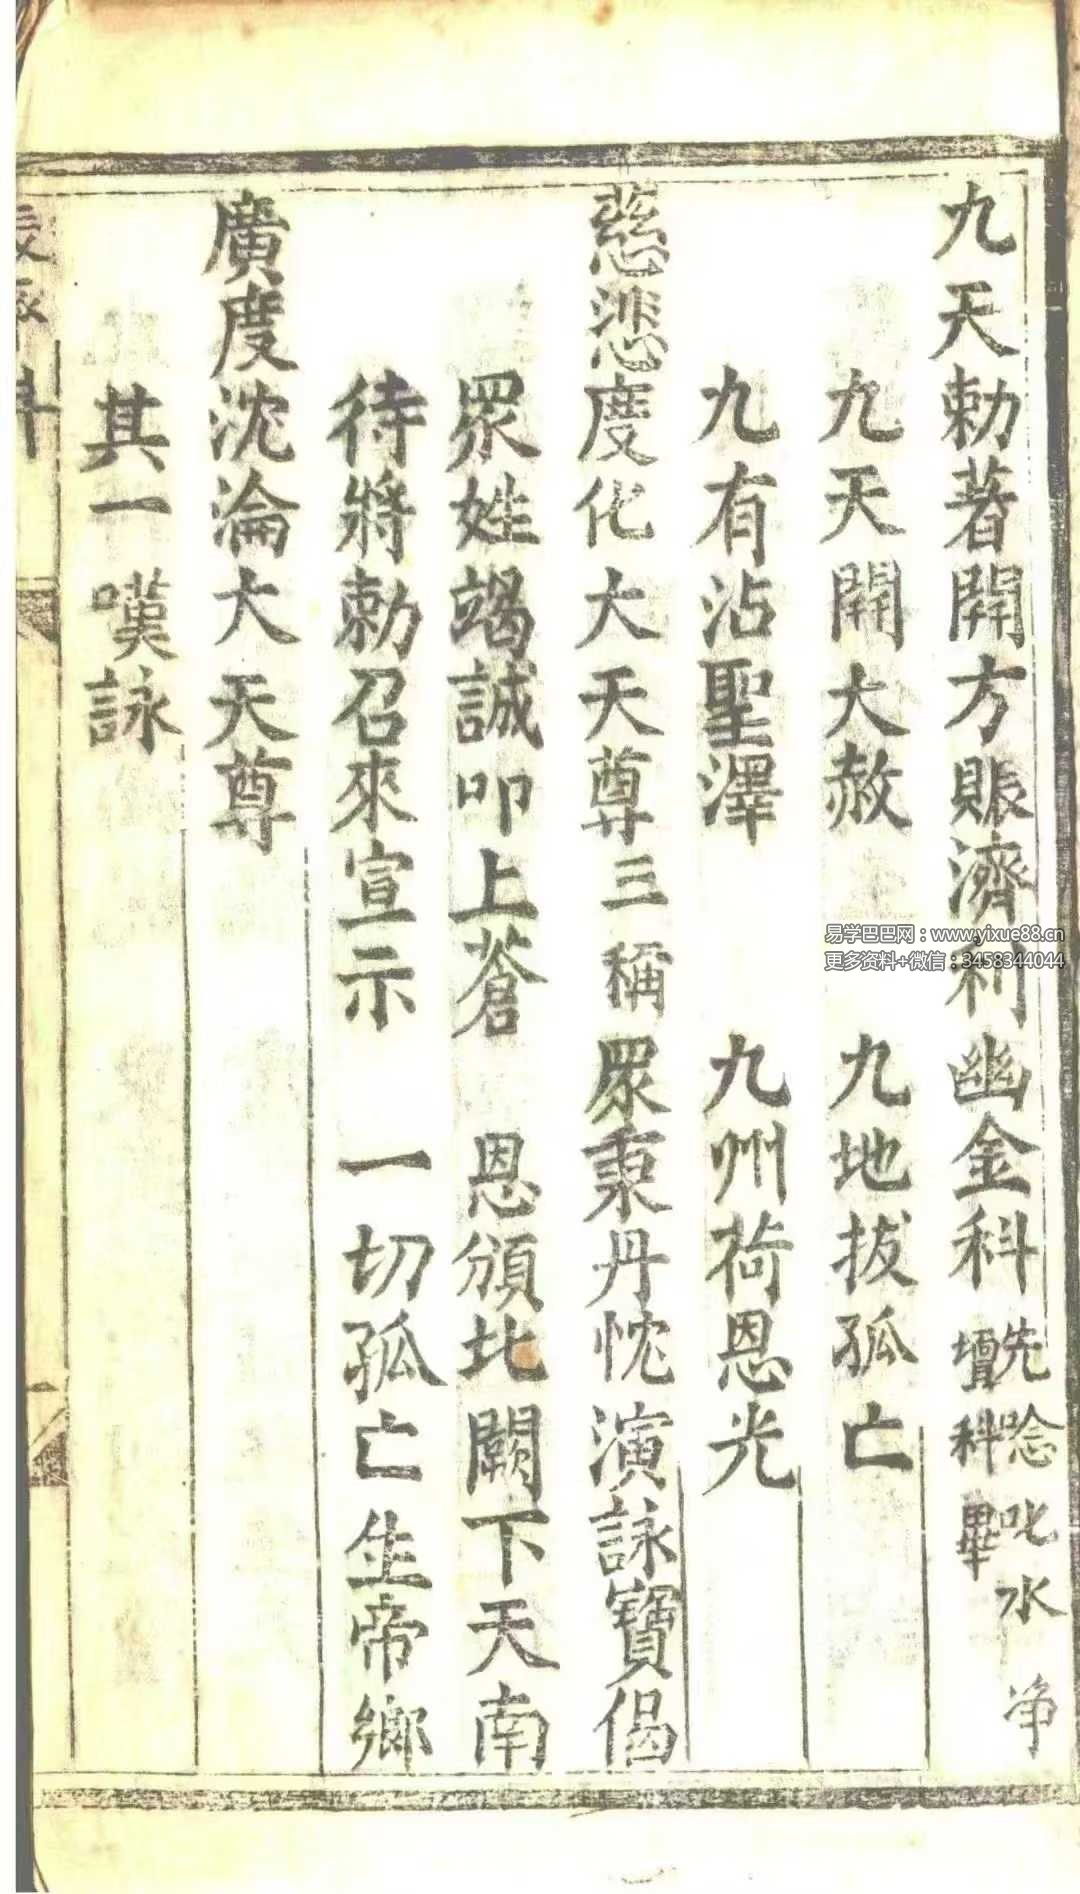 九天勅著開方賑濟利幽金科 先唸叱水淨
壇科畢
九天開大赦 九地拔孤亡
九有沾聖澤 九州荷恩光
慈悲度化大天尊三稱眾秉丹忱演詠寶偈
眾姓竭誠叩上蒼 恩頒北闕下天南
待將勅召來宣示 一切孤亡生帝鄉
廣度沈淪大天尊
其一嘆詠
易学巴巴网：www.yixue88.cn
更多资料+微信：3458344044